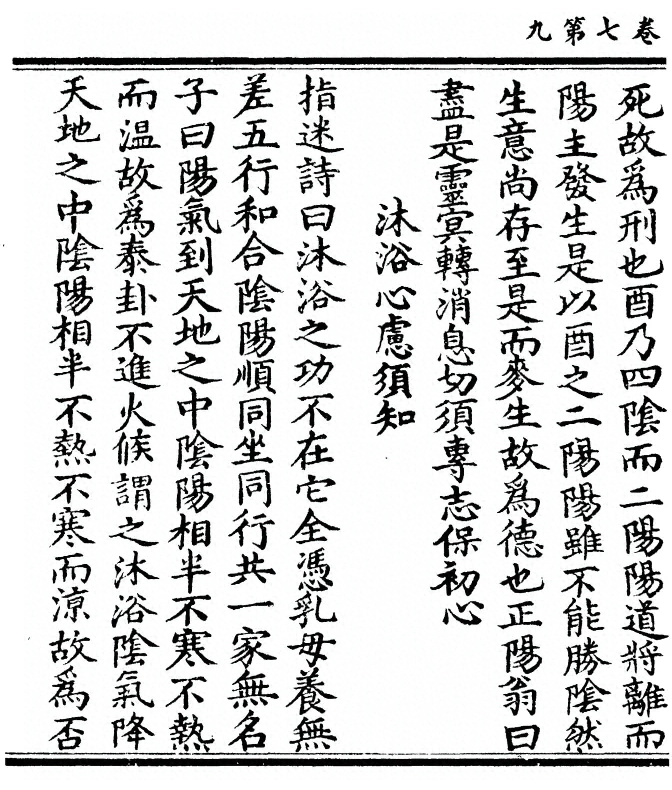 卷七第九
死故爲刑也酉乃四陰而二陽陽道將離而
陽主發生是以酉之二陽陽雖不能勝陰然
生意尚存至是而麥生故爲德也正陽翁曰
盡是靈㝠轉消息切須專志保初心
沐浴心慮須知
指迷詩曰沐浴之功不在它全憑乳母養無
差五行和合陰陽順同坐同行共一家無名
子曰陽氣到天地之中陰陽相半不寒不熱
而温故爲泰卦不進火候謂之沐浴陰氣降
天地之中陰陽相半不熱不寒而涼故爲否